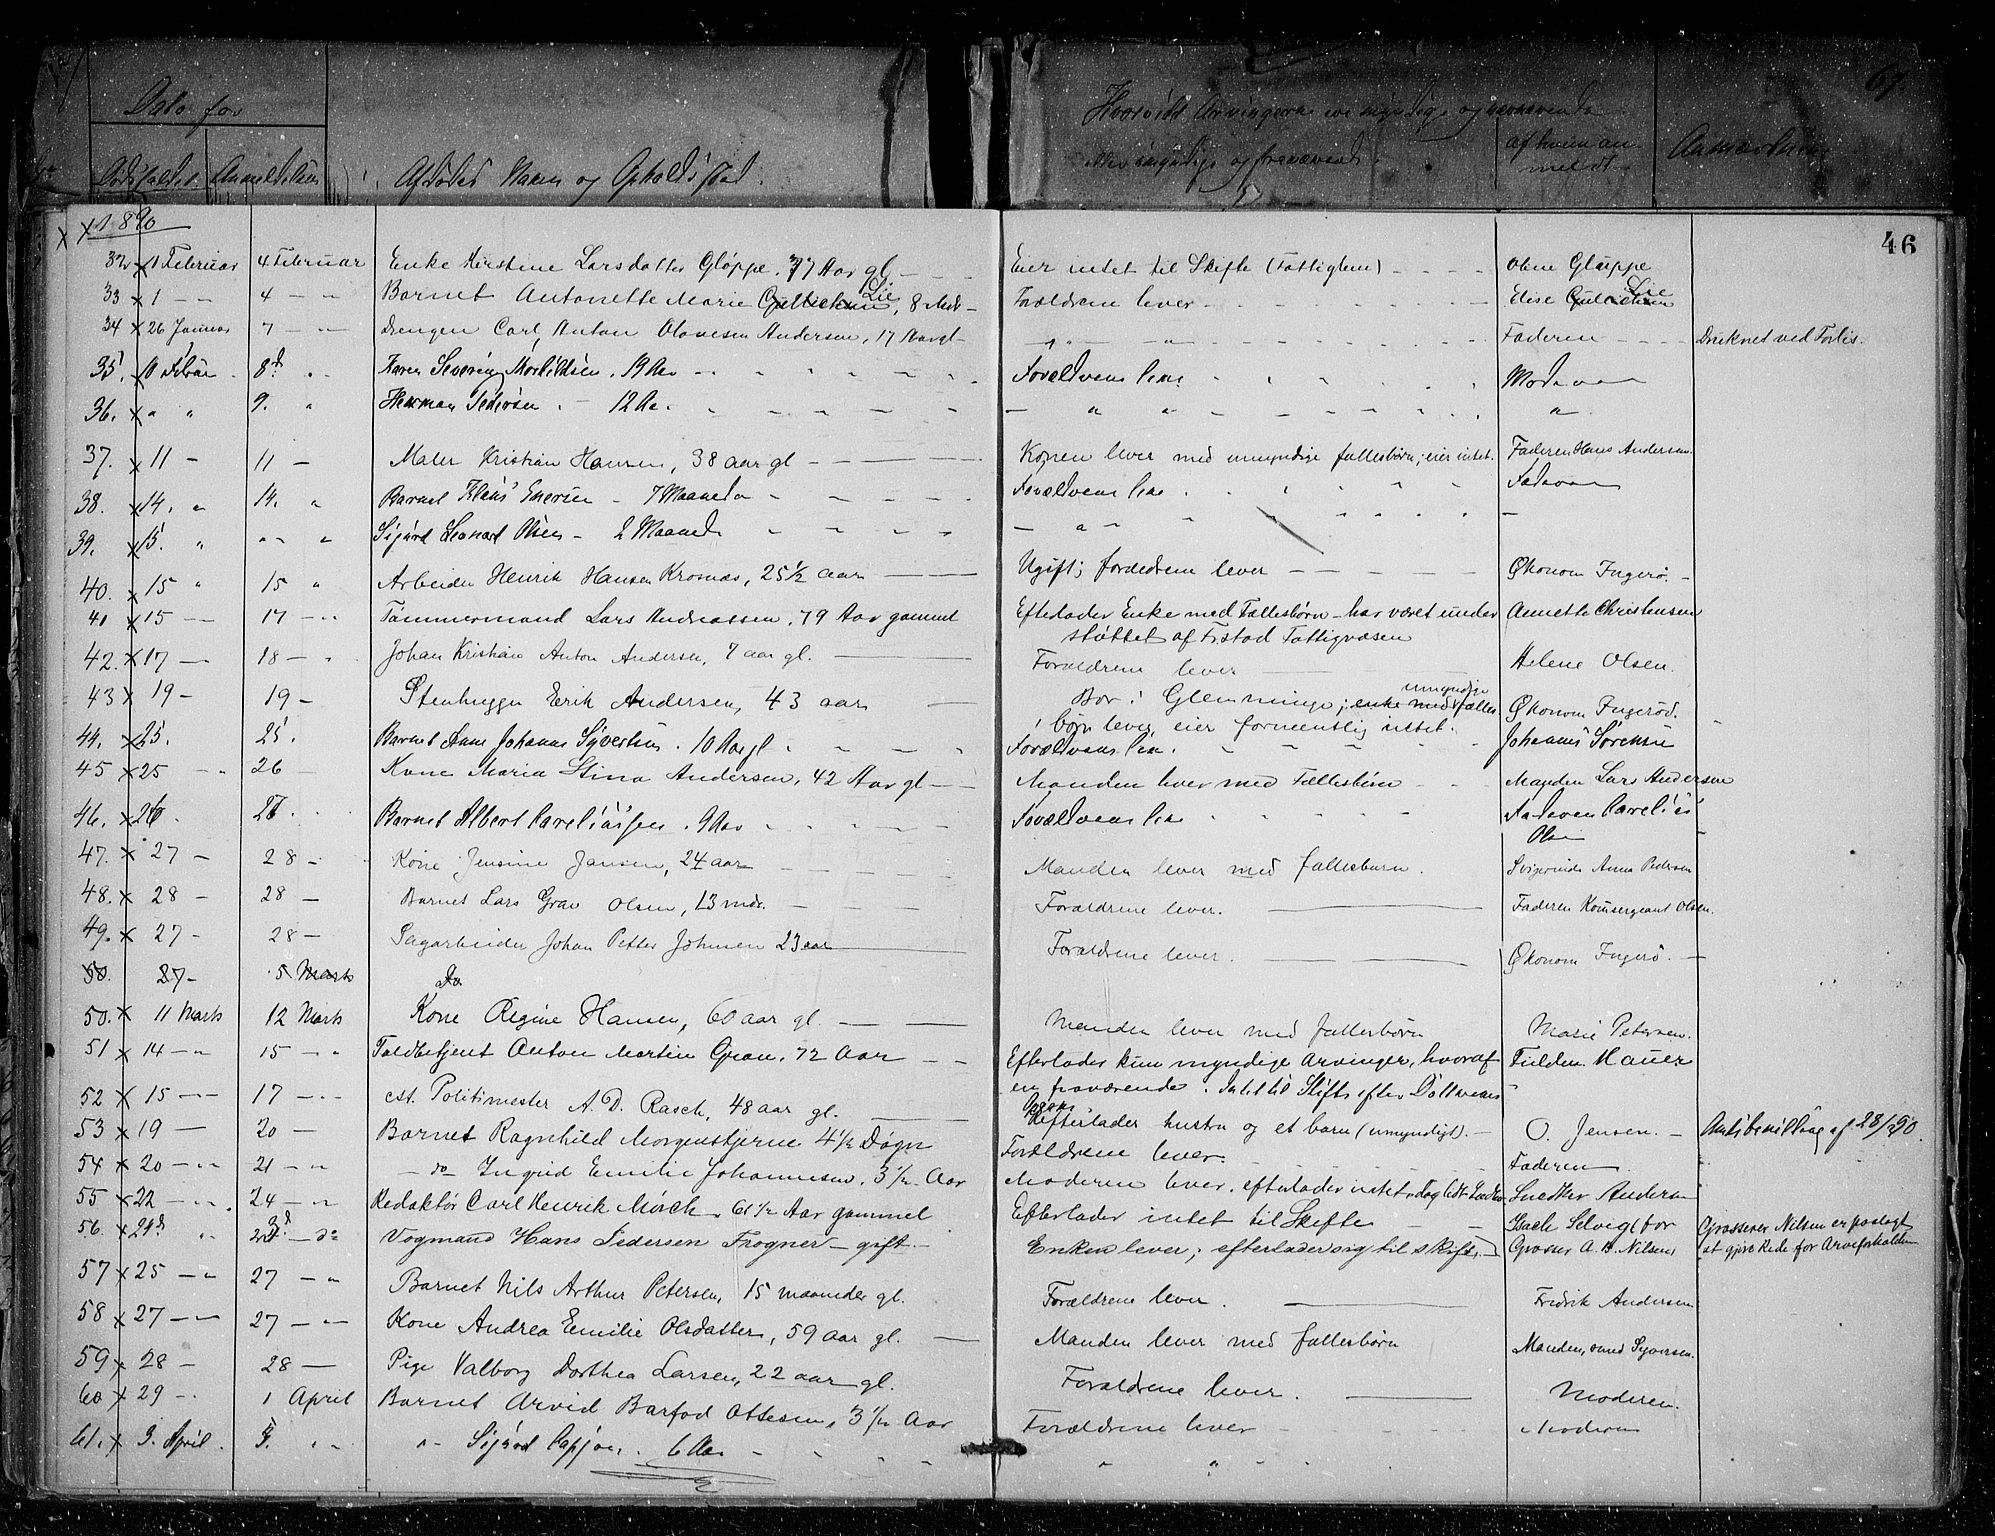 67.
Dato for
Dødsfaldet. Anmeldelsen
Afdødes Navn og Opholdssted.
Hvorvidt Arvingerne ere myndige og nærværende
eller umyndige og fraværende.
af hvem an
meldt
Anmærkning
46
1890
32 1 Februar 4 Februar Enke Kirstine Larsdatter Gløppe, 77 Aar gl. Eier intet til Skifte (Fattiglem) Oline Gløppe
33 1 4 Barnet Antonette Marie Lie, 8 Mdr Forældrene lever Elise Lie
34 26 Januar 7 Drengen Carl Anton Olavesen Andersen, 17 Aar gl Faderen Druknet ved Forlis.
35. 10 Februar 8d Karen Severine, 19 Aar Forældrene leve Moderen
36. " " 9. " Herman Pedersen 12 Aar "
37. 11 11 Maler Kristian Hansen, 38 aar gl Konen lever med umyndige fællesbørn; eier intet. Faderen Hans Andersen
38. 14. " 14. " Barnet Klaus Enersen 7 Maaneder Forældrene leve Faderen
39. 15. " " " Sigurd Leonard Olsen 2 Maaned
40. 15 " 15 " Arbeider Henrik Hansen Krosnæs, 25 1/2 aar Ugift; forældrene lever Økonom Ingerø.
41 15 17 Tømmermand Lars Andreassen, 79 Aar gammel Efterlader Enke med Fællesbørn - har været under Annette Christensen
støttet af Tistad Fattigvæsen
42. 17 18 Johan Kristian Anton Andersen, 7 aar gl. Forældrene lever Helene Olsen.
43 19 19 Stenhugger Erik Andersen, 43 aar Bor i Glemminge; enke med umyndige fælles Økonom Ingerød.
børn lever, eier formentlig intet.
44. 25. 25. Barnet Anne Johanne Syvertsen. 10 Aar gl Forældrene leve Johannes Sørensen
45 25 26 Kone Maria Stina Andersen, 42 Aar gl Manden lever med Fællesbørn Manden Lars Andersen
46. 26. 27. Barnet Albert Careliussen. 9 Aar Forældrene leve Faderen Carelius
Olsen
47. 27 28 Kone Jensine Jansen, 24 aar Manden lever med fællesbarn. Svigerinde Anna Pedersen
48. 28 28 Barnet Lars Grav Olsen, 13 mdr. Forældrene lever. Faderen Komsergeant Olsen.
49. 27 28 Sagarbeider Johan Petter Johnsen 23 aar Forældrene lever. Økonom Ingerø.
50. 27 5 Marts Do
50. 11 Marts 12 Marts Kone Regine Hansen, 60 aar gl. Manden lever med fællesbørn Marie Petersen.
51 14 15 Toldbetjent Anton Martin Gran, 72 Aar Efterlader kun myndige Arvinger, hvoraf Fuldm. Hauer
en fraværende. Intet til Skifte efter
52 15 17 cst. Politimester A. D. Rasch, 48 aar gl. Efterlader hustru og et barn (umyndigt). O. Jensen. af 28/3 90.
53 19 20 Barnet Ragnhild Morgenstjerne 4 1/2 Døgn Forældrene lever. Faderen
54 20 21 do Ingrid Emilie Johannesen, 3 1/2 Aar Moderen lever, efterlader intet Snedker Andersen
55 22 24 Redaktør Carl Henrik Mørch, 61 1/2 Aar gammel Efterlader intet til Skifte
56. 24d Vogmand Hans Pedersen Frogner - gift. Enken lever; efterlader sig til skifte. Grosser A. B. Nilsen Grosserer Nilsen er paalagt
at gjøre Rede for Arveforholdene
57 25 27 Barnet Nils Arthur Petersen, 15 maaneder gl. Forældrene lever. Fredrik Andersen
58 27 27 Kone Andrea Emilie Olsdatter, 59 aar gl. Manden lever med fællesbørn Manden, smed Syversen.
59 28 28 Pige Valborg Dorthea Larsen, 22 aar gl. Forældrene lever. Moderen.
60 29 1 April Barnet Arvid Barfod Ottesen, 3 1/2 Aar Forældrene lever Moderen
61. 3. April Sigurd 6 Aar